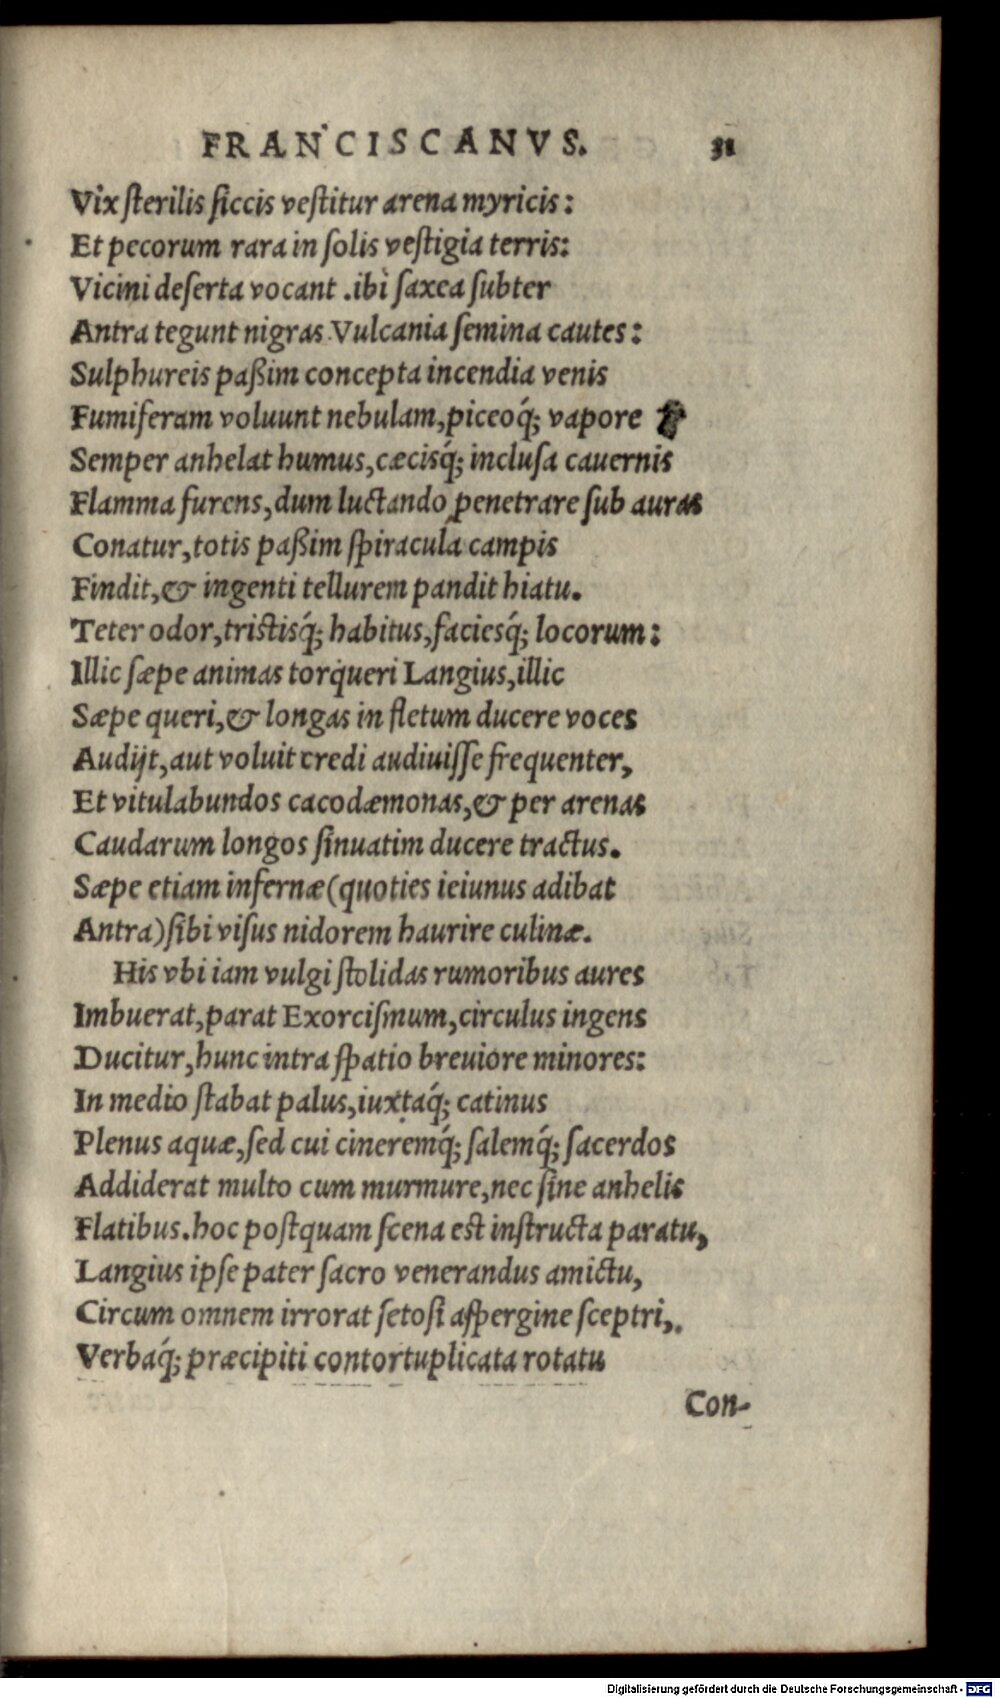 FRANCISCANVS. 31
Vix ſterilis ſiccis veſtitur arena myricis:
Et pecorum rara in ſolis veſtigia terris:
Vicini deſerta vocant. ibi ſaxea ſubter
Antra tegunt nigras Vulcania ſemina cautes:
Sulphureis paßim concepta incendia venis
Fumiferam voluunt nebulam, piceoq́; vapore
Semper anhelat humus, cæcisq́; incluſa cauernis
Flamma furens, dum luctando penetrare ſub auras
Conatur, totis paßim ſpiracula campis
Findit, & ingenti tellurem pandit hiatu.
Teter odor, tristisq́; habitus, faciesq́; locorum:
Illic ſæpe animas torqueri Langius, illic
Sæpe queri, & longas in fletum ducere voces
Audijt, aut voluit credi audiuiſſe frequenter,
Et vitulabundos cacodæmonas, & per arenas
Caudarum longos ſinuatim ducere tractus.
Sæpe etiam infernæ (quoties ieiunus adibat
Antra) ſibi viſus nidorem haurire culinæ.
His vbi iam vulgi ſtolidas rumoribus aures
Imbuerat, parat Exorciſmum, circulus ingens
Ducitur, hunc intra ſpatio breuiore minores:
In medio ſtabat palus, iuxtaq́; catinus
Plenus aquæ, ſed cui cineremq́; ſalemq́; ſacerdos
Addiderat multo cum murmure, nec ſine anhelis
Flatibus. hoc poſtquam ſcena est inſtructa paratu,
Langius ipſe pater ſacro venerandus amictu,
Circum omnem irrorat ſetoſi aſpergine ſceptri,
Verbaq́; præcipiti contortuplicata rotatu
Con-
Digitalisierung gefördert durch die Deutsche Forschungsgemeinschaft - DFG